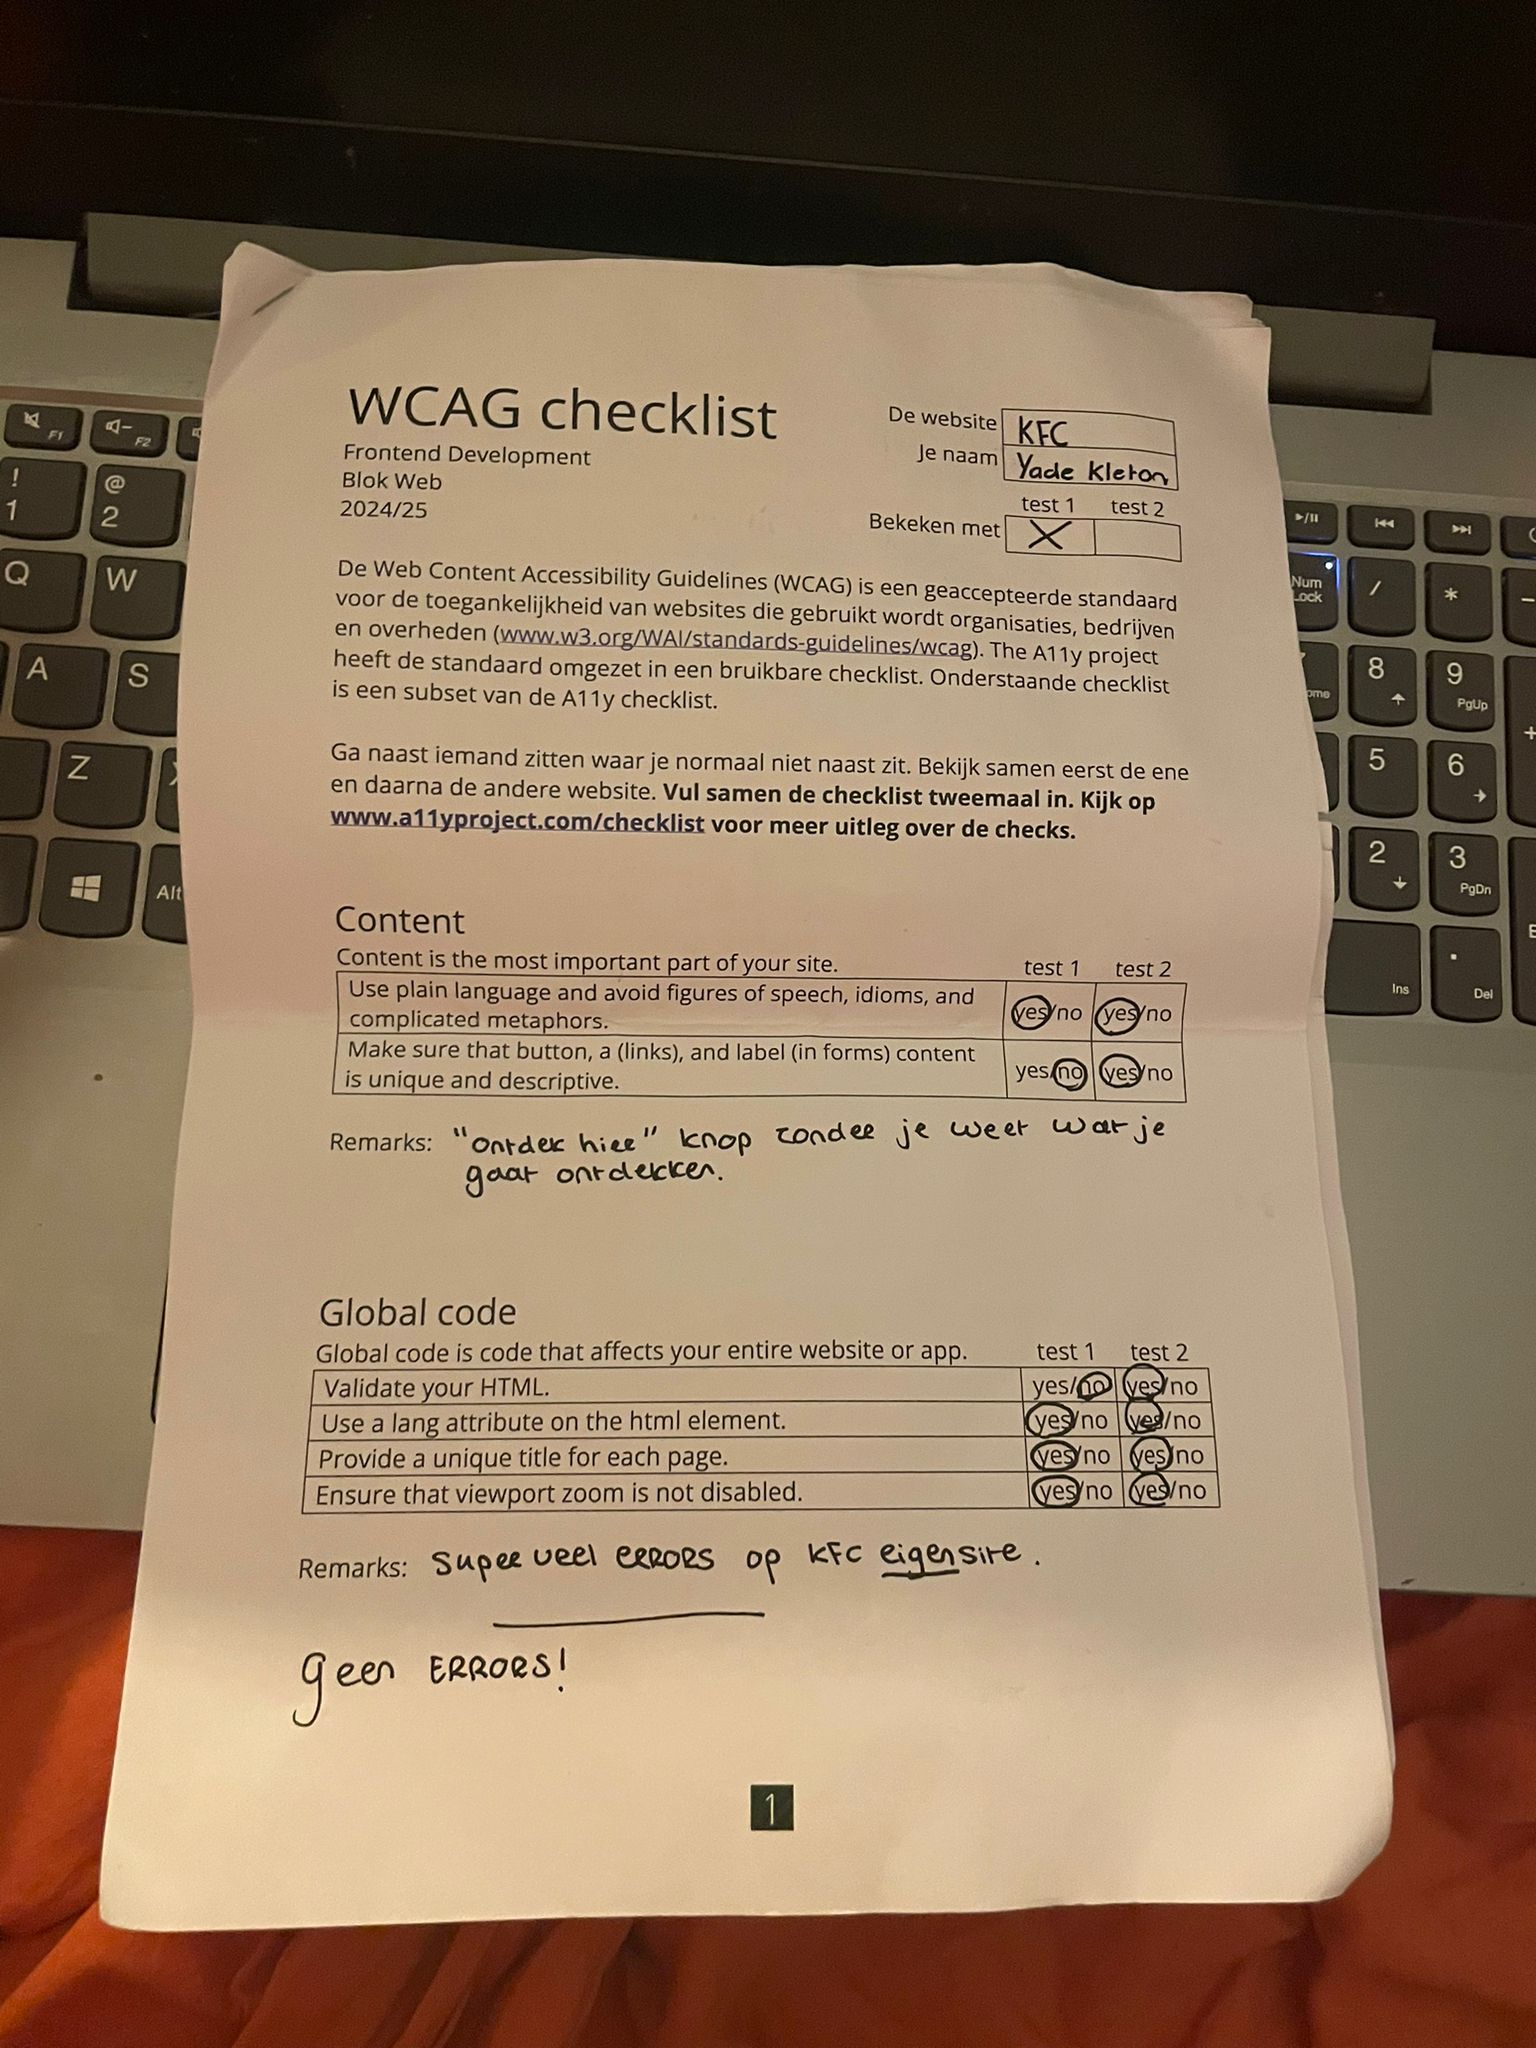 WCAG checklist
Frontend Development
Blok Web
2024/25
De website KFC
Je naam Yade Kleton
test 1 test 2
Bekeken met X
De Web Content Accessibility Guidelines (WCAG) is een geaccepteerde standaard
voor de toegankelijkheid van websites die gebruikt wordt organisaties, bedrijven
en overheden (www.w3.org/WAI/standards-guidelines/wcag). The A11y project
heeft de standaard omgezet in een bruikbare checklist. Onderstaande checklist
is een subset van de A11y checklist.
Ga naast iemand zitten waar je normaal niet naast zit. Bekijk samen eerst de ene
en daarna de andere website. Vul samen de checklist tweemaal in. Kijk op
www.a11yproject.com/checklist voor meer uitleg over de checks.
Content
Content is the most important part of your site. test 1 test 2
Use plain language and avoid figures of speech, idioms, and
complicated metaphors. yes/no yes/no
Make sure that button, a (links), and label (in forms) content
is unique and descriptive. yes/no yes/no
Remarks: "ontdek hier" knop zonder je weet wat je
gaat ontdekken.
Global code
Global code is code that affects your entire website or app. test 1 test 2
Validate your HTML. yes/no yes/no
Use a lang attribute on the html element. yes/no yes/no
Provide a unique title for each page. yes/no yes/no
Ensure that viewport zoom is not disabled. yes/no yes/no
Remarks: super veel errors op KFC eigen site.
geen ERRORS!
1
F1
F2
!
1
@
2
Q
W
A
S
Z
Alt
Num
Lock
/
*
8
9
PgUp
5
6
2
3
PgDn
Ins
.
Del